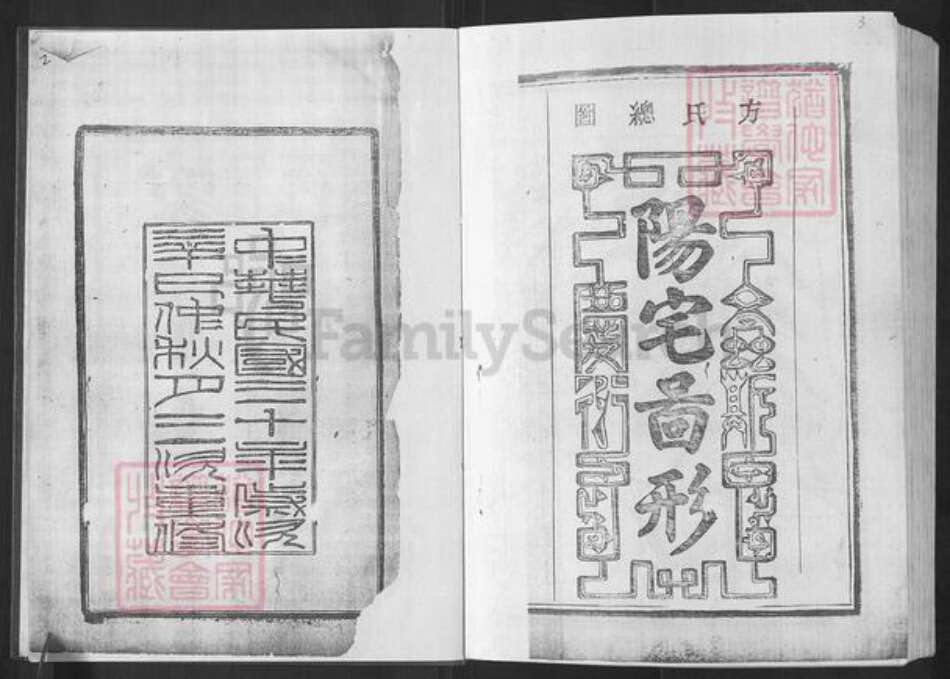 3
方氏總
陽宅啚形
2
中華民國三十年歲次
辛巳仲秋月三次重修
FamilySearch